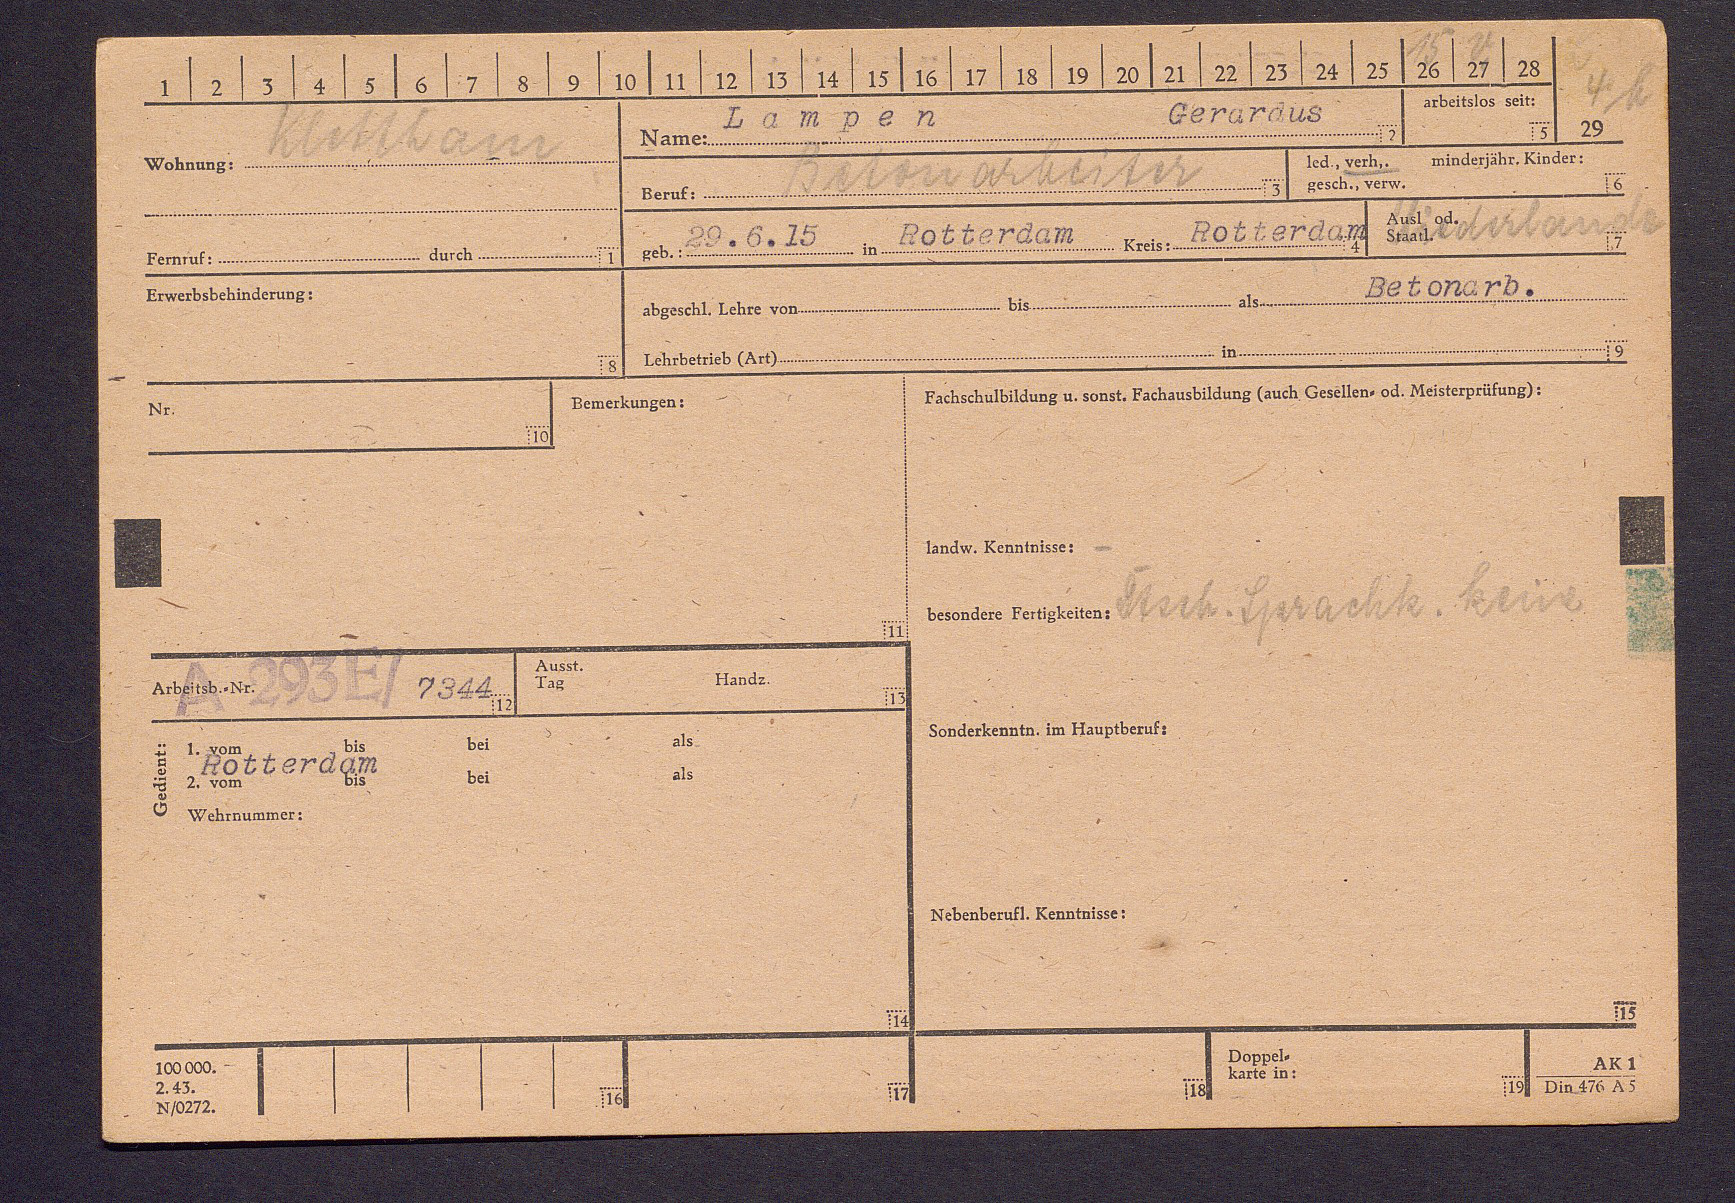 1 2 3 4 5 6 7 8 9 10 11 12 13 14 15 16 17 18 19 20 21 22 23 24 25 26 27 28
Wohnung: Klettham
Name: Lampen Gerardus 2
arbeitslos seit: 5
29
Beruf: Betonarbeiter 3
led., verh,. minderjähr. Kinder:
gesch., verw. 6
Fernruf: durch 1
geb.: 29.6.15 in Rotterdam Kreis: Rotterdam 4
Ausl od. Niederlande
Staatl. 7
Erwerbsbehinderung: 8
abgeschl. Lehre von bis als Betonarb.
Lehrbetrieb (Art) in 9
Nr. 10
Bemerkungen: 11
Fachschulbildung u. sonst. Fachausbildung (auch Gesellen- od. Meisterprüfung):
landw. Kenntnisse: –
besondere Fertigkeiten: Dtsch. Sprachk. keine
Arbeitsb.-Nr. A 293E/ 7344 12
Ausst.
Tag Handz. 13
Sonderkenntn. im Hauptberuf:
Gedient:
1. vom bis bei als
Rotterdam
2. vom bis bei als
Wehrnummer:
14
Nebenberufl. Kenntnisse:
15
100 000.
2. 43.
N/0272.
16
17
18
Doppel-
karte in: 19
AK 1
Din 476 A 5